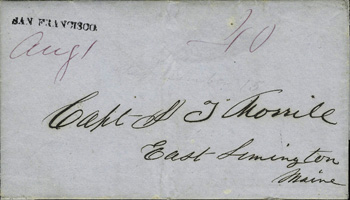 SAN FRANCISCO
Aug 1
40
Capt S T Morrill
East Limington
Maine